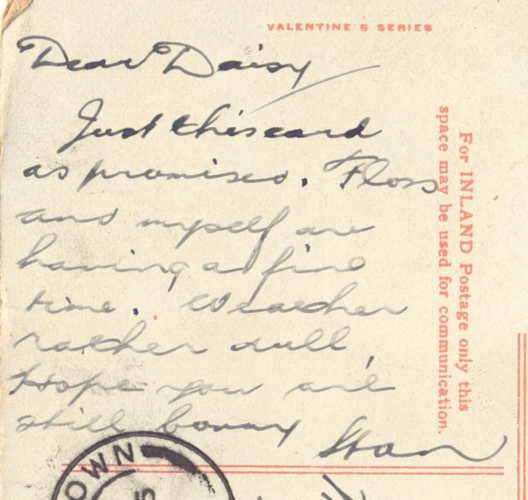 VALENTINE'S SERIES
Dear Daisy
Just this card
as promised. Floss
and myself are
having a fine
time. Weather
rather dull,
Hope you are
still bonny Stan
For INLAND Postage only this
space may be used for communication.
OWN